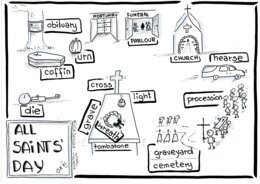 obituary
MORTUARY
FUNERAL
PARLOUR
CHURCH
hearse
urn
coffin
die
cross
light
grave
wreath
tombstone
procession
graveyard
cemetery
ALL
SAINTS'
DAY